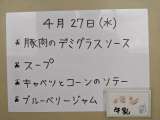 4月27日(水)
★豚肉のデミグラスソース
★スープ
★キャベツとコーンのソテー
★ブルーベリージャム
パン
牛乳